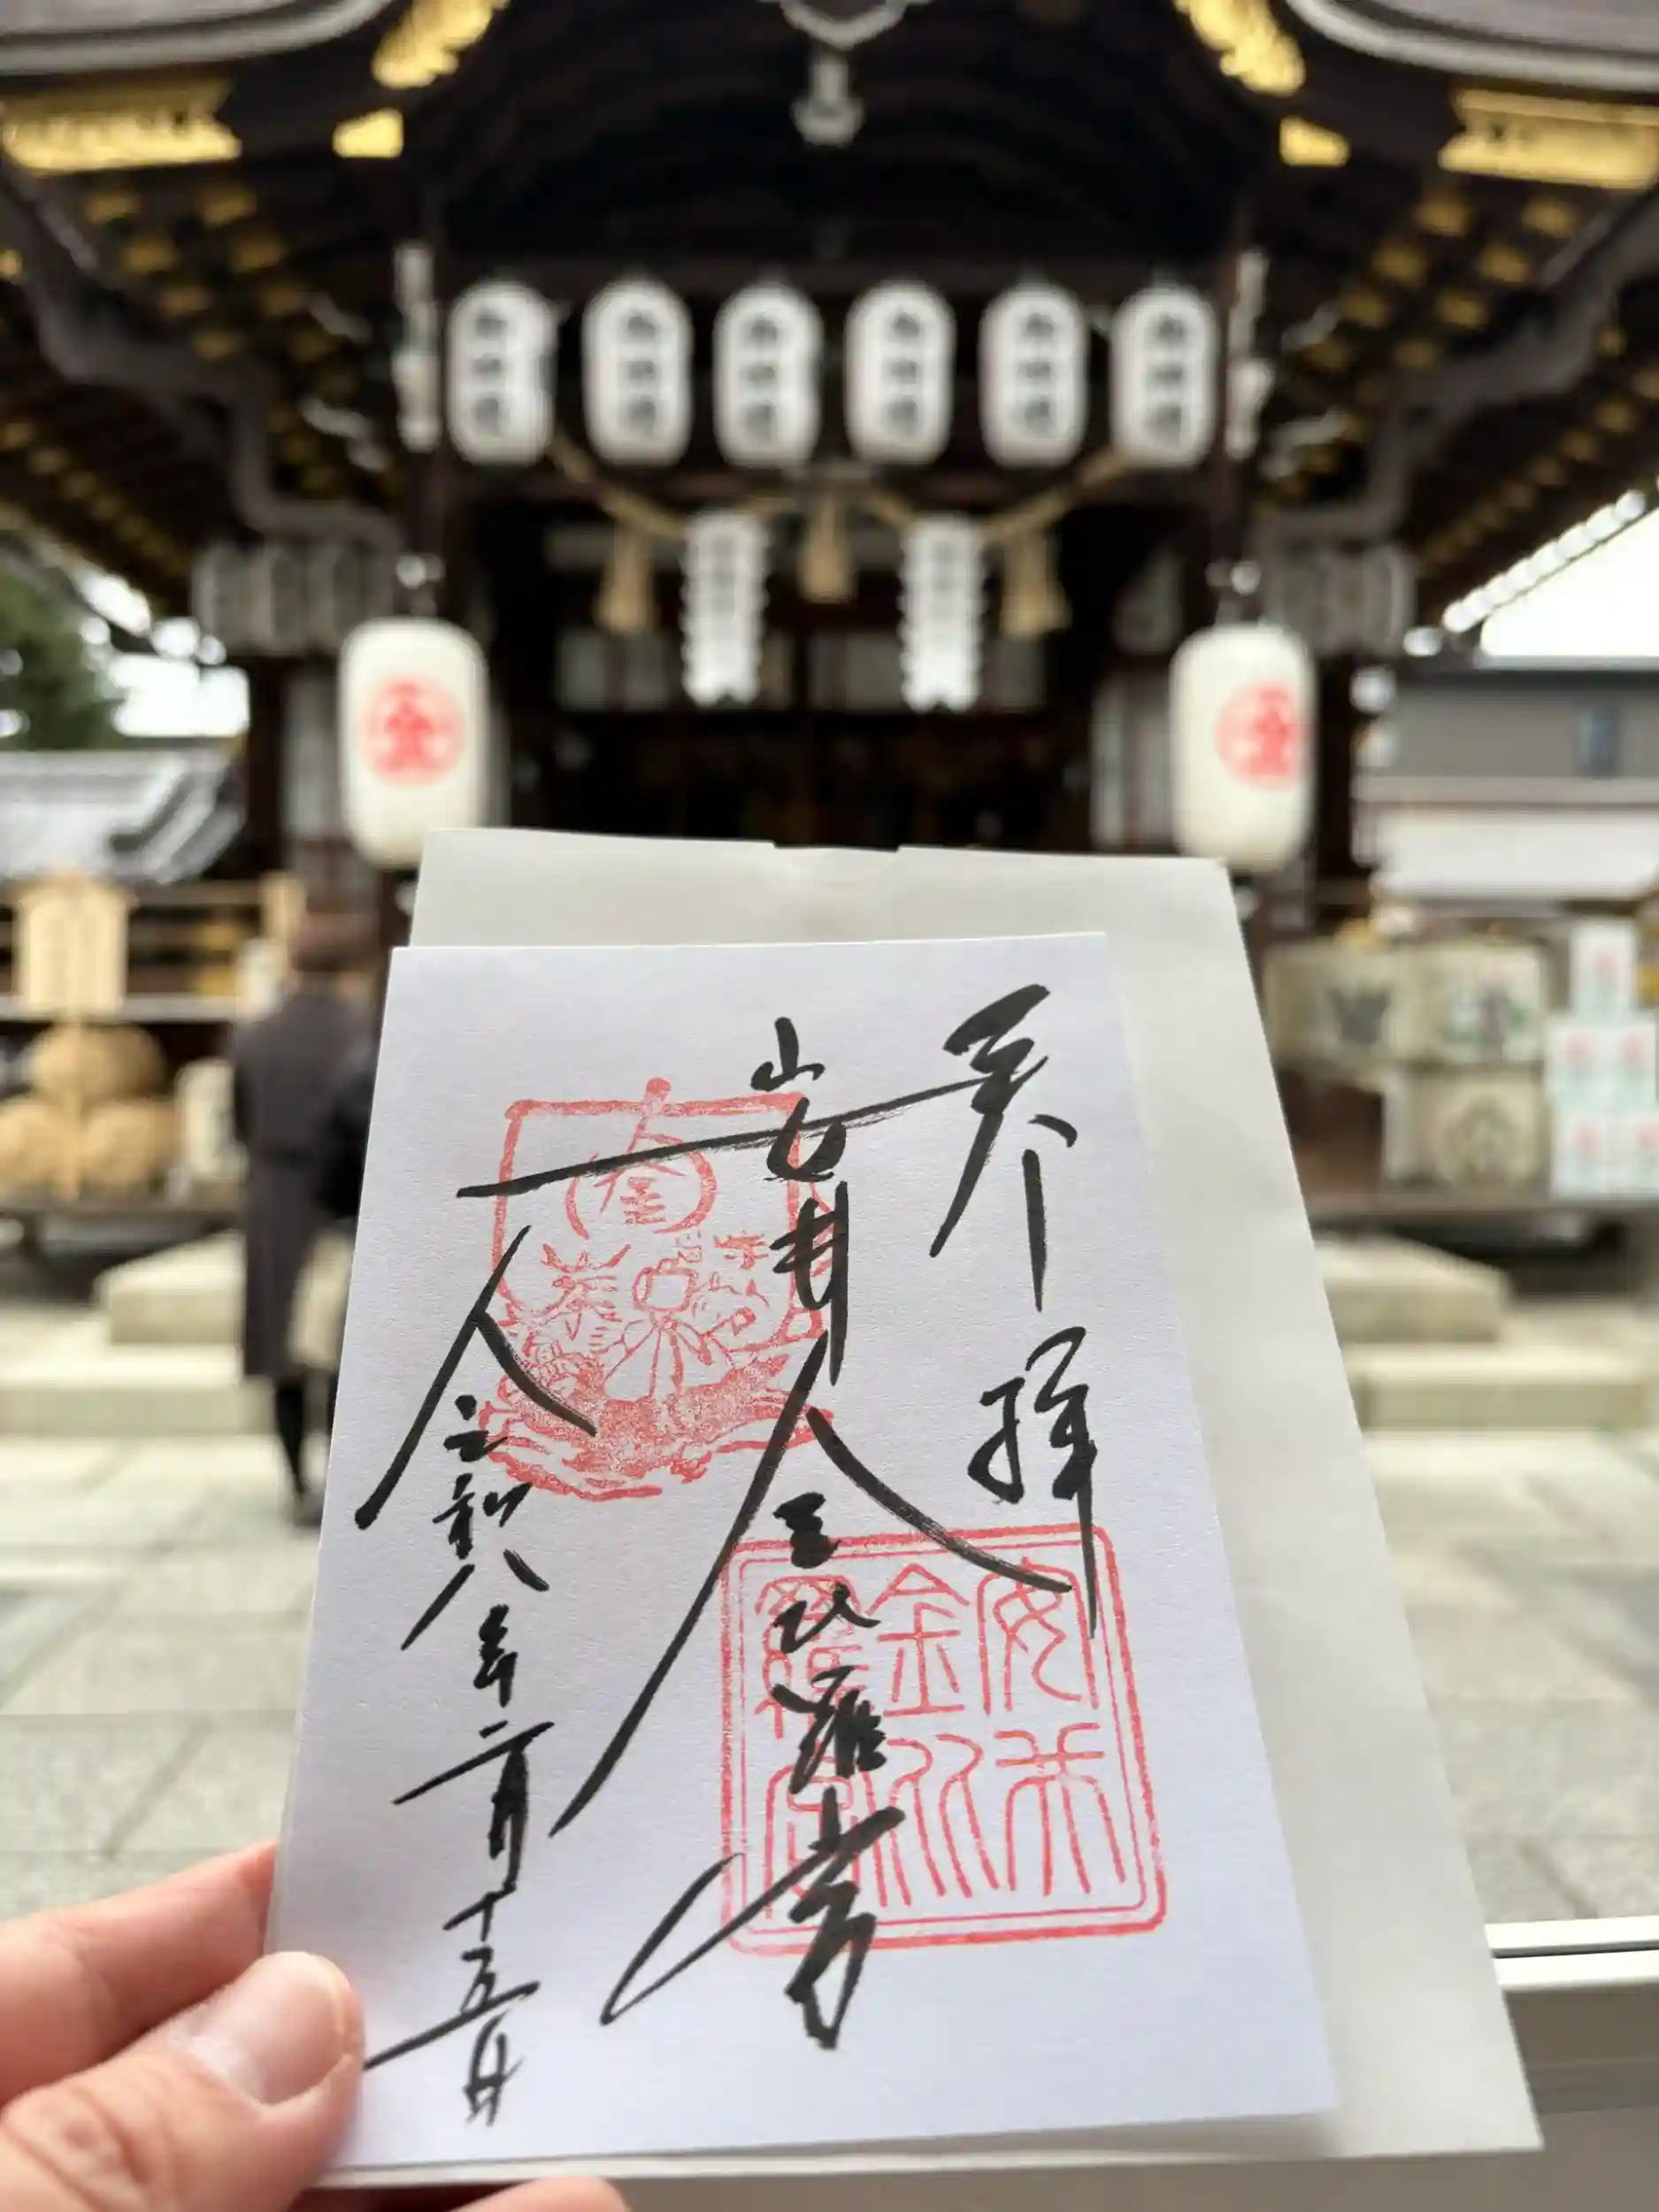 金
金
奉拝
安井金比羅宮
令和八年二月十五日
金
安井
金比
羅宮